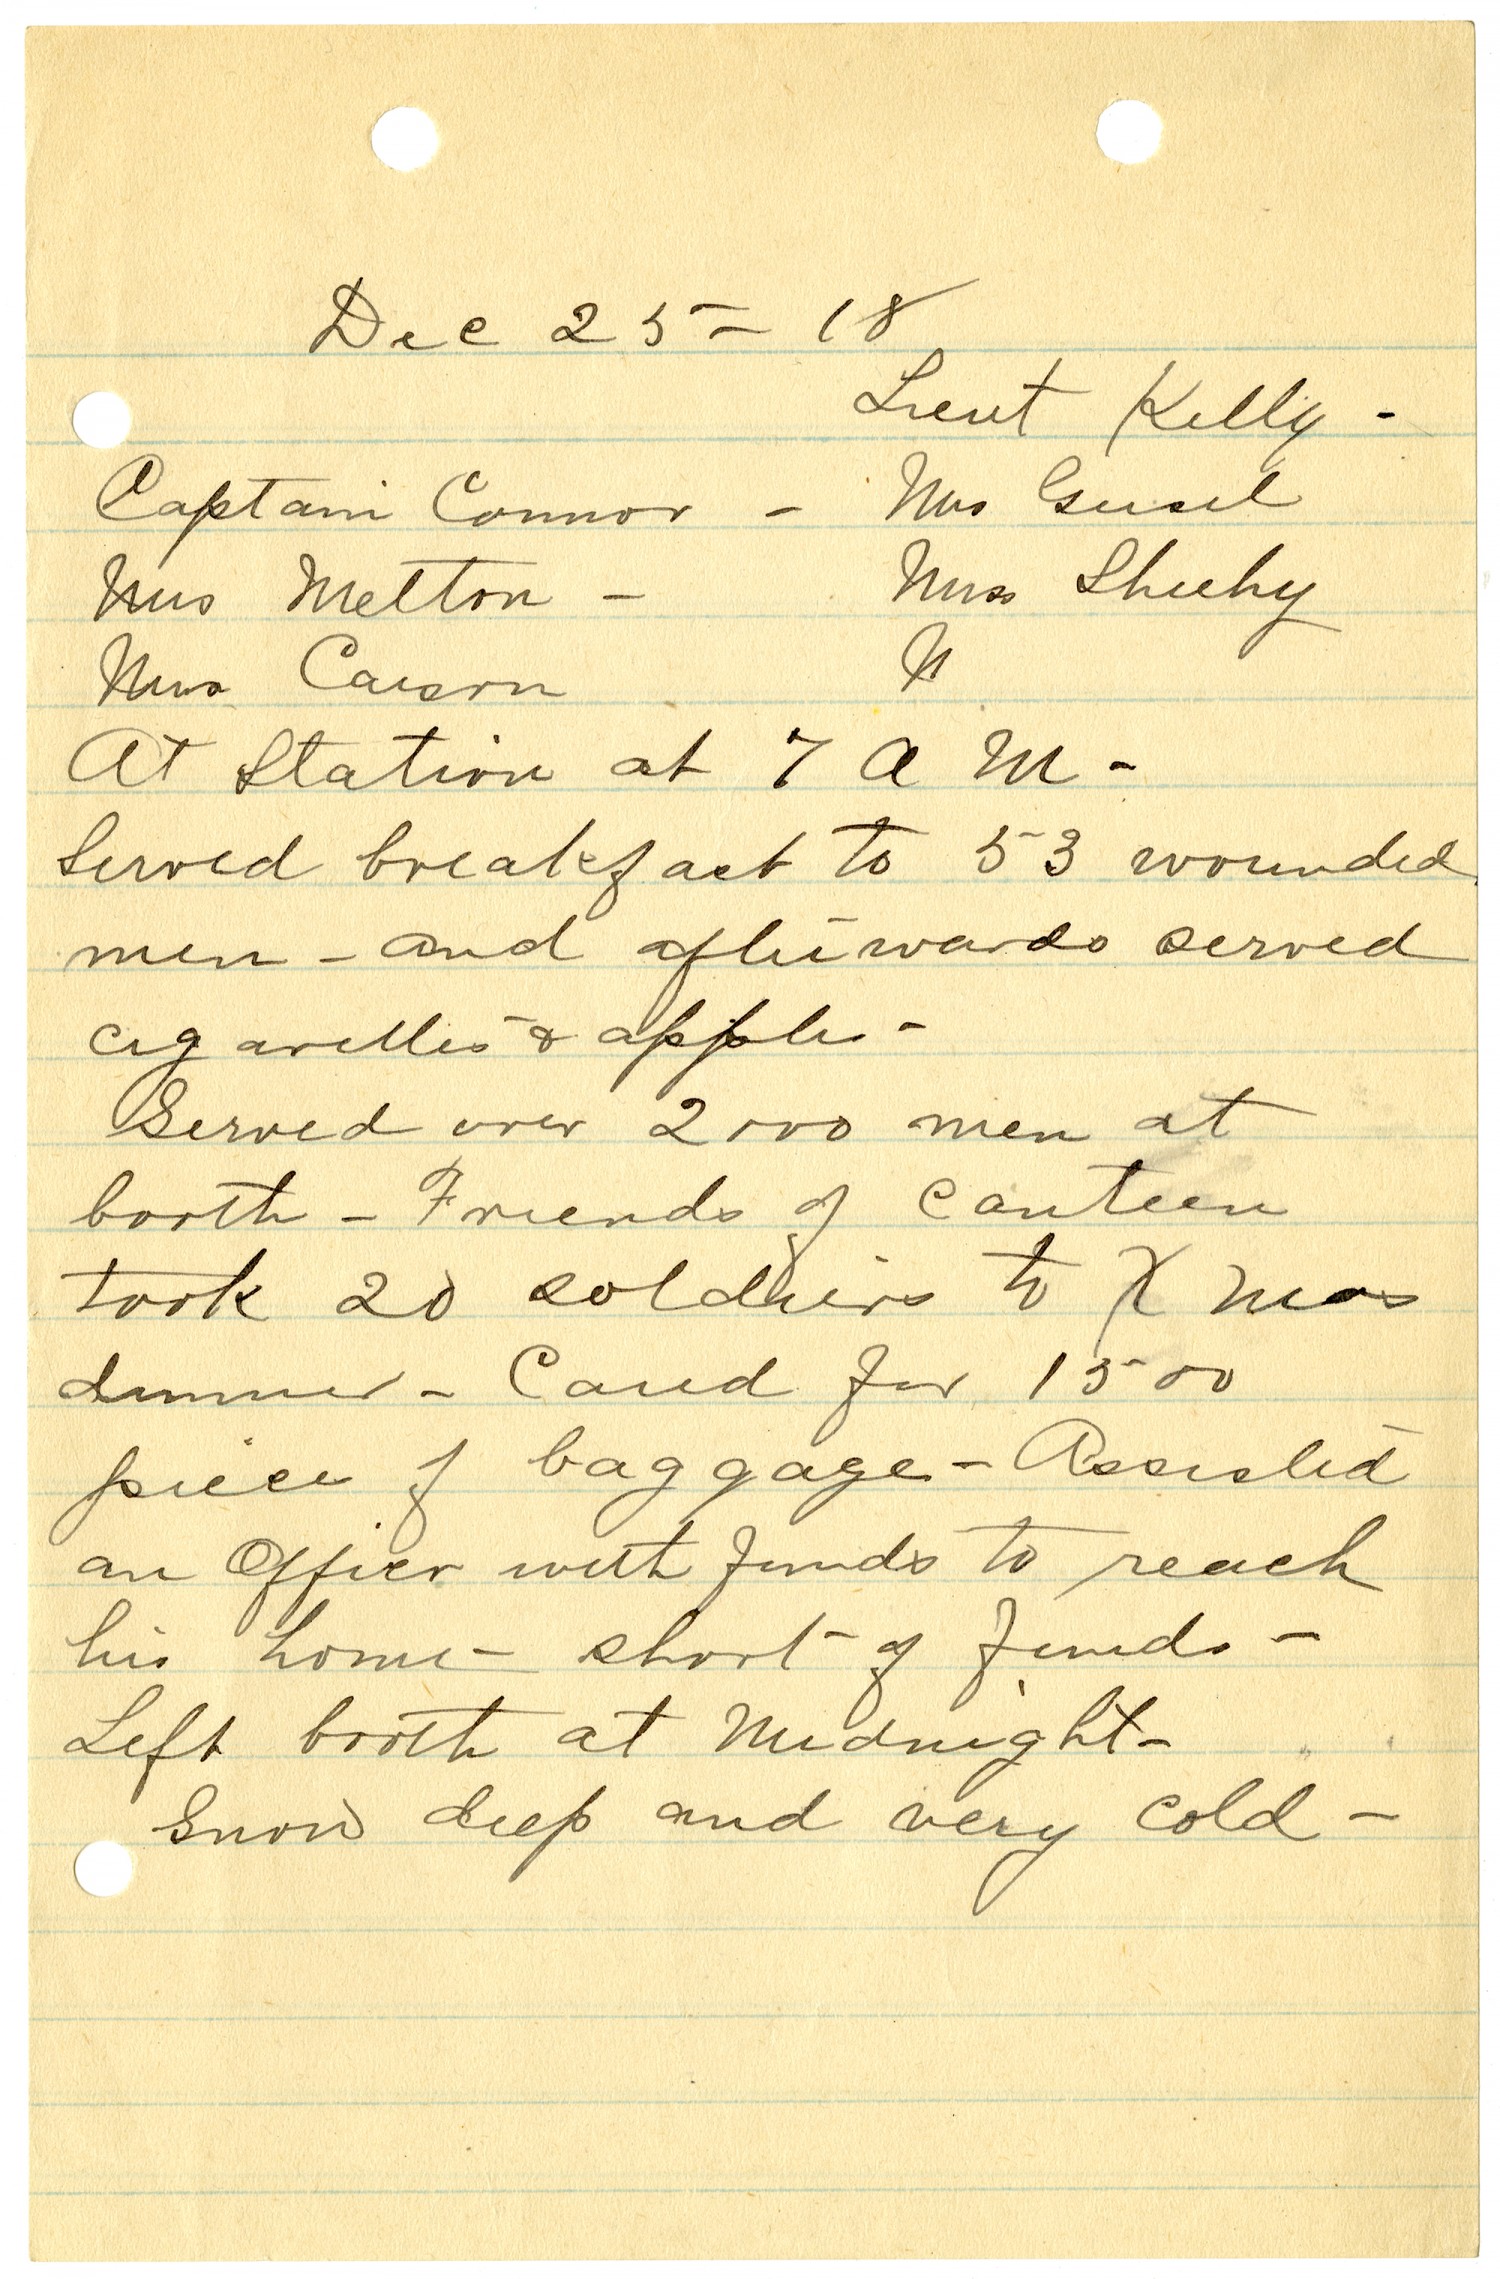 Dec 25 - 18
Lieut Kelly -
Captain Connor - Mrs Geisel
Mrs Melton - Miss Sheehy
Mrs Carson M
At Station at 7 A M -
Served breakfast to 53 wounded
men - and afterwards served
cigarettes & apples -
Served over 2000 men at
booth - Friends of Canteen
took 20 soldiers to X mas
dinner - Cared for 1500
piece of baggage - Assisted
an Officer with funds to reach
his home - short of funds -
Left booth at Midnight -
Snow deep and very cold -